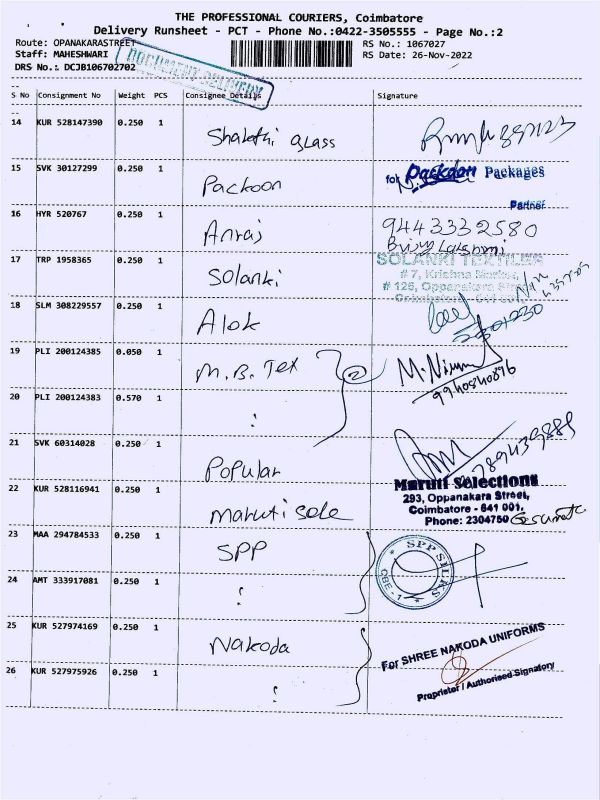 THE PROFESSIONAL COURIERS, Coimbatore
Delivery Runsheet - PCT - Phone No.:0422-3505555 - Page No.:2
Route: OPANAKARASTREET
RS No.: 1067027
Staff: MAHESHWARI
RS Date: 26-Nov-2022
DRS No.: DCJB106702702
DOCUMENT DELIVERY
S No Consignment No Weight PCS Consignee Details Signature
14 KUR 528147390 0.250 1 Shakthi Glass
15 SVK 30127299 0.250 1 Packoon for Packdon Packages
Partner
16 HYR 520767 0.250 1 Anraj 9443332580
17 TRP 1958365 0.250 1 Solanki SOLANKI TEXTILES
# 7, Krishna Market,
# 126, Oppanakara Street
Coimbatore - 641 001.
18 SLM 308229557 0.250 1 Alok 2301230
19 PLI 200124385 0.050 1 M.B. Tex 2
20 PLI 200124383 0.570 1 :
21 SVK 60314028 0.250 1 Popular
22 KUR 528116941 0.250 1 Maruti Sele Maruti Selections
293, Oppanakara Street,
Coimbatore - 641 001.
Phone: 2304750
23 MAA 294784533 0.250 1 SPP SPP SILKS
CBE - 1
24 AMT 333917081 0.250 1 :
25 KUR 527974169 0.250 1 Nakoda For SHREE NAKODA UNIFORMS
Proprietor / Authorised Signatory
26 KUR 527975926 0.250 1 :